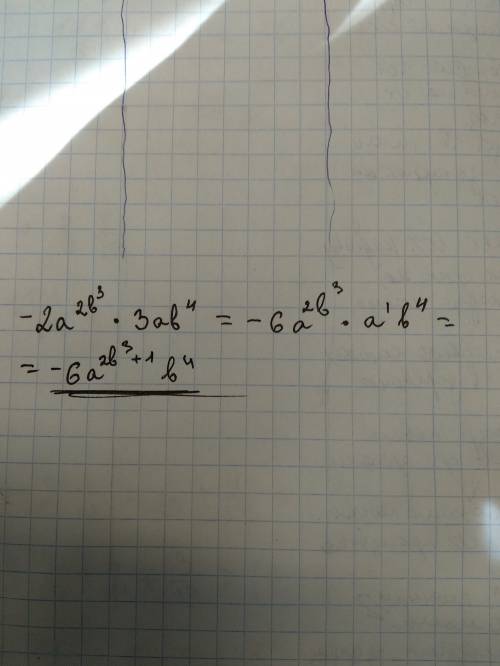 -2a^{2b^3} · 3ab^4 = -6a^{2b^3} · a^1 b^4 =
= -6a^{2b^3+1} b^4